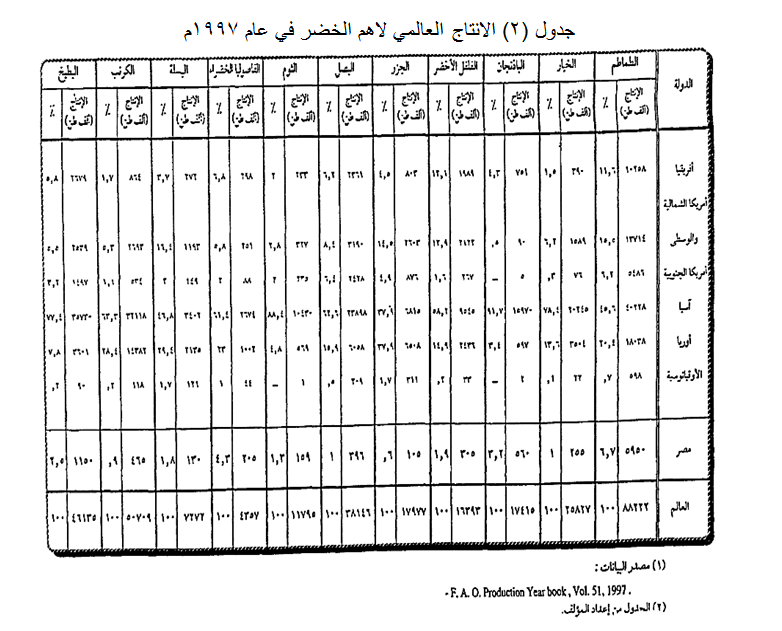 جدول (٢) الانتاج العالمي لاهم الخضر في عام ١٩٩٧م
الدولة الطماطم الخيار الباذنجان الفلفل الأخضر الجزر البصل الثوم الفاصوليا الخضراء البسلة الكرنب البطيخ
الإنتاج (ألف طن) ٪ الإنتاج (ألف طن) ٪ الإنتاج (ألف طن) ٪ الإنتاج (ألف طن) ٪ الإنتاج (ألف طن) ٪ الإنتاج (ألف طن) ٪ الإنتاج (ألف طن) ٪ الإنتاج (ألف طن) ٪ الإنتاج (ألف طن) ٪ الإنتاج (ألف طن) ٪ الإنتاج (ألف طن) ٪
أفريقيا ١٠٢٥٨ ١١,٦ ٣٩٠ ١,٥ ٧٥١ ٤,٣ ١٩٨٩ ١٢,١ ٨٠٣ ٤,٥ ٢٣٦١ ٦,٢ ٢٣٣ ٢ ٢٩٨ ٦,٨ ٢٧٢ ٣,٧ ٨٦٤ ١,٧ ٢٦٧٩ ٥,٨
أمريكا الشمالية
والوسطى ١٣٧١٤ ١٥,٥ ١٥٨٩ ٦,٢ ٩٠ ,٥ ٢١٢٢ ١٢,٩ ٢٦٠٣ ١٤,٥ ٣١٩٠ ٨,٤ ٣٢٧ ٢,٨ ٢٥١ ٥,٨ ١١٩٣ ١٦,٤ ٢٦٩٣ ٥,٣ ٢٥٣٩ ٥,٥
أمريكا الجنوبية ٥٤٨٦ ٦,٢ ٧٦ ,٣ ٥ – ٢٦٧ ١,٦ ٨٧٦ ٤,٩ ٢٤٢٨ ٦,٤ ٢٣٥ ٢ ٨٨ ٢ ١٤٩ ٢ ٥٣٤ ١,١ ١٤٩٧ ٣,٢
آسيا ٤٠٢٢٨ ٤٥,٦ ٢٠٢٤٥ ٧٨,٤ ١٥٩٧٠ ٩١,٧ ٩٥٤٥ ٥٨,٢ ٦٨١٥ ٣٧,٩ ٢٣٨٩٨ ٦٢,٦ ١٠٤٣٠ ٨٨,٤ ٢٦٧٤ ٦١,٤ ٣٤٠٢ ٤٦,٨ ٣٢١١٨ ٦٣,٣ ٣٥٧٣٠ ٧٧,٤
أوربا ١٨٠٣٨ ٢٠,٤ ٣٥٠٤ ١٣,٦ ٥٩٧ ٣,٤ ٢٤٣٦ ١٤,٩ ٦٥٠٨ ٣٧,٩ ٦٠٥٨ ١٥,٩ ٥٦٩ ٤,٨ ١٠٠٢ ٢٣ ٢١٣٥ ٢٩,٤ ١٤٣٨٢ ٢٨,٤ ٣٦٠١ ٧,٨
الأوقيانوسية ٥٩٨ ,٧ ٢٢ ,١ ٢ – ٣٣ ,٢ ٣١١ ١,٧ ٢٠٩ ,٥ ١ – ٤٤ ١ ١٢١ ١,٧ ١١٨ ,٢ ٩٠ ,٢
مصر ٥٩٥٠ ٦,٧ ٢٥٥ ١ ٥٦٠ ٣,٢ ٣٠٥ ١,٩ ١٠٥ ,٦ ٣٩٦ ١ ١٥٩ ١,٣ ٢٠٥ ٤,٣ ١٣٠ ١,٨ ٤٦٥ ,٩ ١١٥٠ ٢,٥
العالم ٨٨٢٢٢ ١٠٠ ٢٥٨٢٧ ١٠٠ ١٧٤١٥ ١٠٠ ١٦٣٩٣ ١٠٠ ١٧٩٧٧ ١٠٠ ٣٨١٤٦ ١٠٠ ١١٧٩٥ ١٠٠ ٤٣٥٧ ١٠٠ ٧٢٧٢ ١٠٠ ٥٠٧٠٩ ١٠٠ ٤٦١٣٥ ١٠٠
(١) مصدر البيانات :
- F. A. O. Production Year book , Vol. 51, 1997 .
(٢) الجدول من إعداد المؤلف.